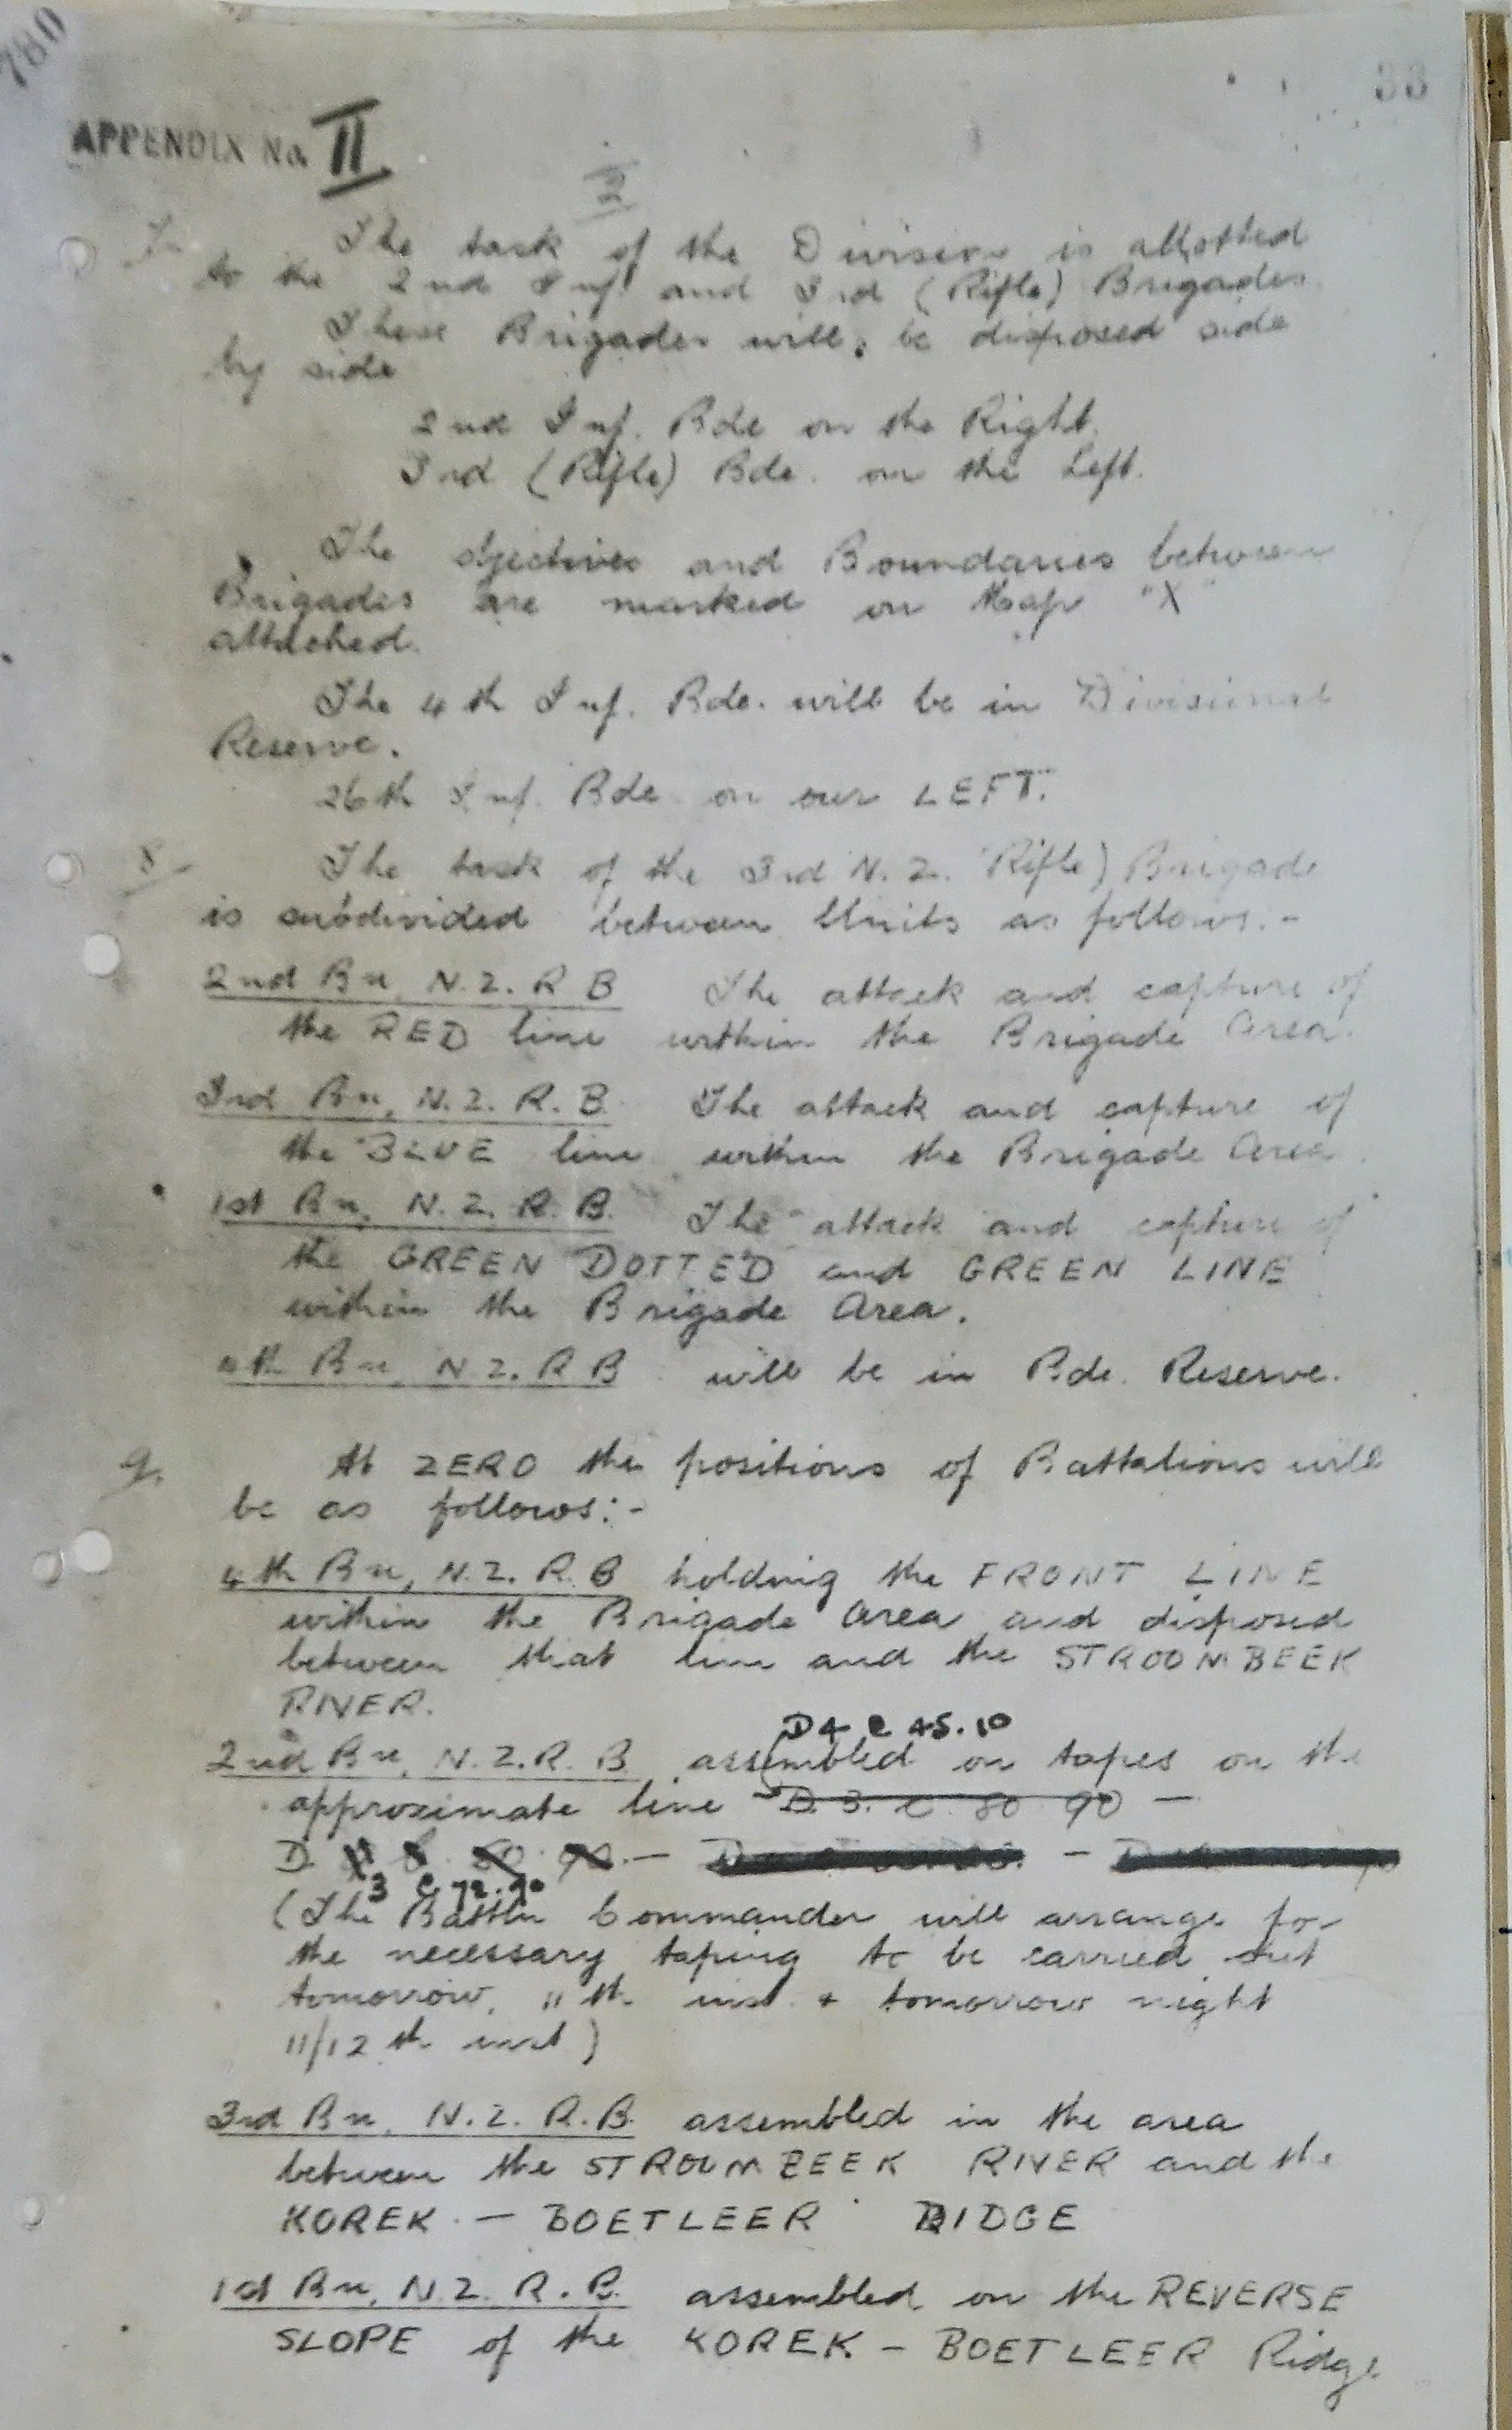 780
33
APPENDIX No. II
2
7. The task of the Division is allotted
to the 2nd Inf. and 3rd (Rifle) Brigades.
These Brigades will be disposed side
by side
2nd Inf. Bde on the Right.
3rd (Rifle) Bde. on the Left.
The objectives and Boundaries between
Brigades are marked on Map "X"
attached.
The 4th Inf. Bde. will be in Divisional
Reserve.
26th Inf. Bde on our LEFT.
8. The task of the 3rd N.Z. (Rifle) Brigade
is subdivided between Units as follows:-
2nd Bn, N.Z. R B The attack and capture of
the RED line within the Brigade Area.
3rd Bn, N.Z. R. B. The attack and capture of
the BLUE line within the Brigade Area.
1st Bn, N.Z. R. B. The attack and capture of
the GREEN DOTTED and GREEN LINE
within the Brigade Area.
4th Bn, N Z. R B will be in Bde. Reserve.
9. At ZERO the positions of Battalions will
be as follows:-
4th Bn, N.Z. R. B holding the FRONT LINE
within the Brigade Area and disposed
between that line and the STROOMBEEK
RIVER.
D4 c 45.10
2nd Bn, N.Z.R. B. assembled on tapes on the
approximate line D. 3. c. 80 90 -
D. - -
3 c 72.90
(The Battln Commander will arrange for
the necessary taping to be carried out
tomorrow, 11th inst. + tomorrow night
11/12 th inst)
3rd Bn, N.Z. R.B. assembled in the area
between the STROOMBEEK RIVER and the
KOREK - BOETLEER RIDGE
1st Bn, N.Z. R. B. assembled on the REVERSE
SLOPE of the KOREK - BOETLEER Ridge